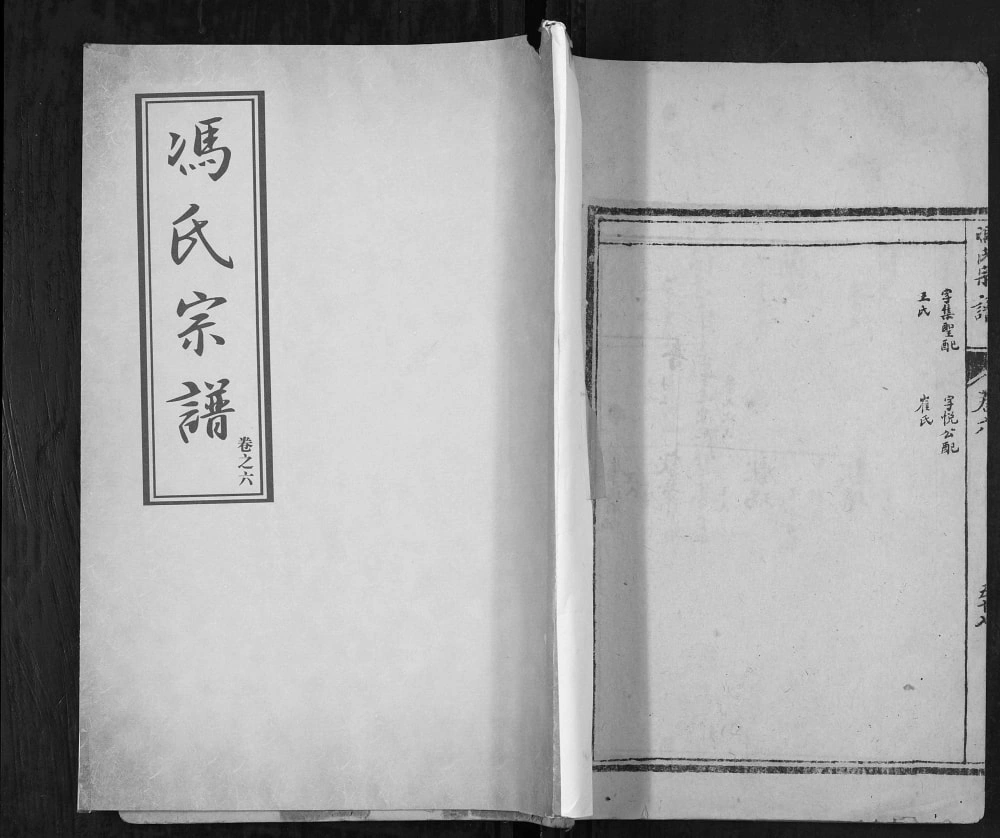 馮氏宗譜
卷之六
馮氏宗譜
卷六
五十八
字集聖配
王氏
字悅公配
崔氏